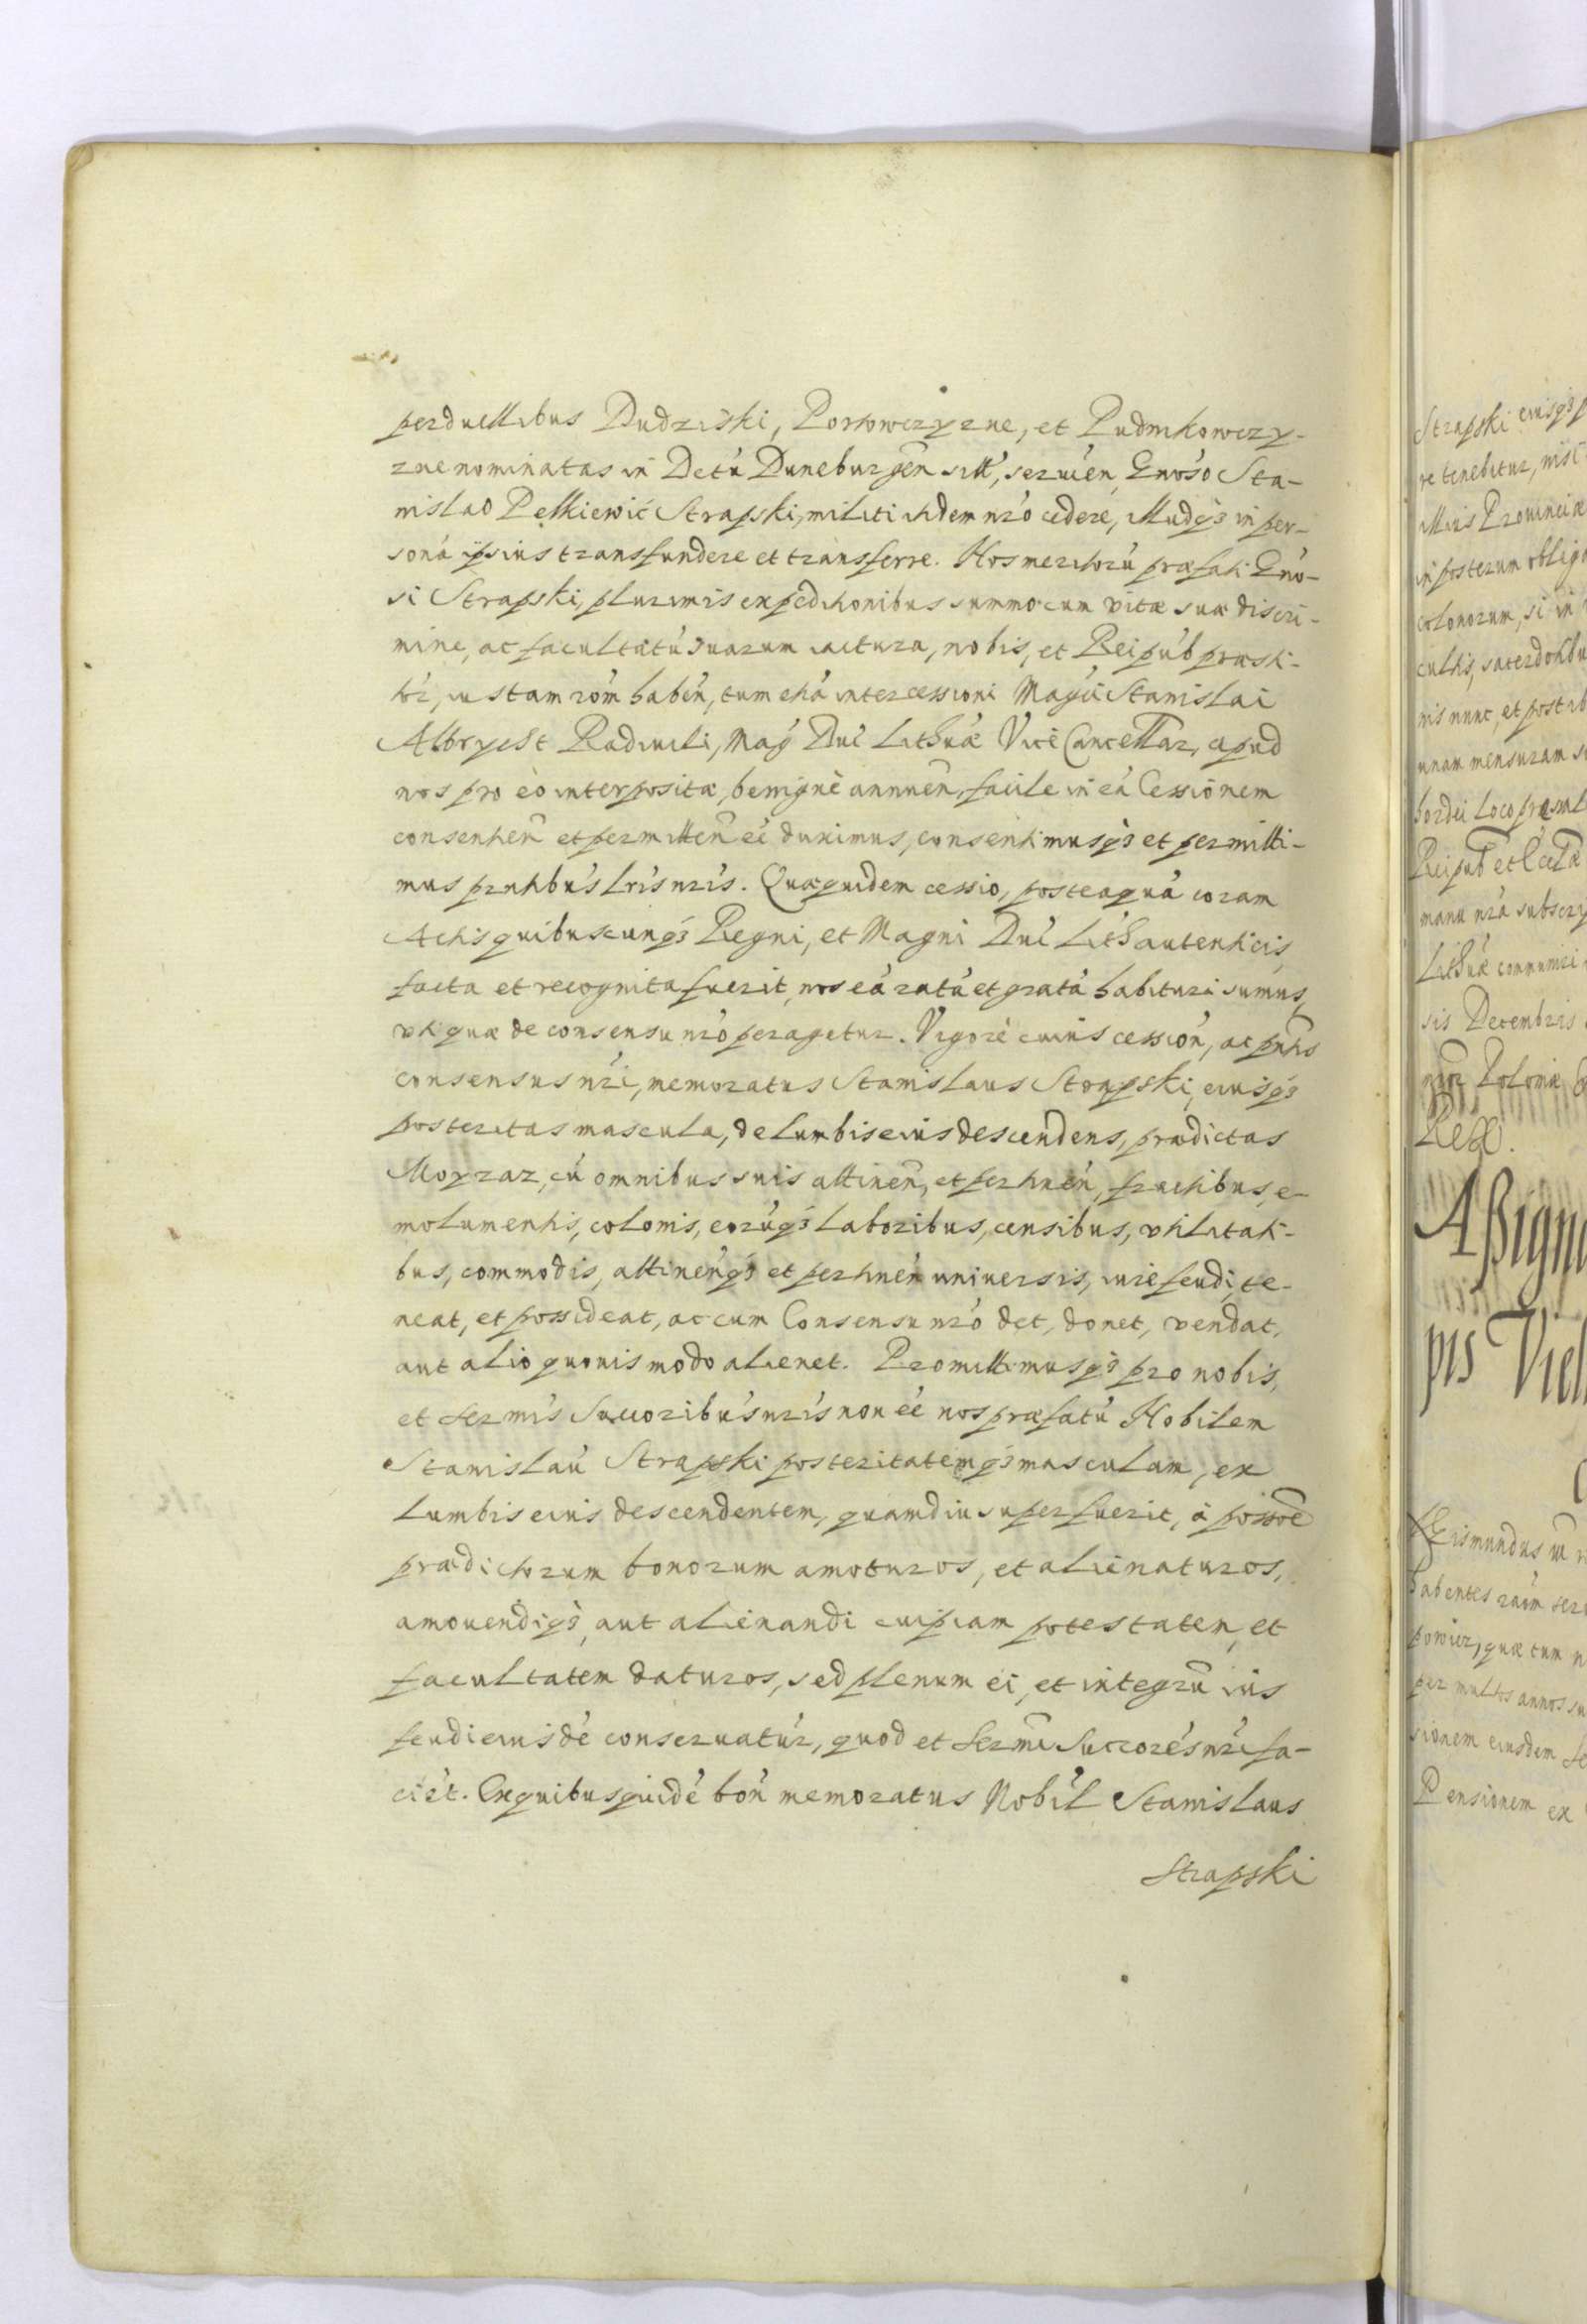 perduellibus Dudziski, Portowczyzne, et Pudmkowczy-
zne nominatas in Dctú Duneburgen sitt, seruien, Gnóso Sta-
nislao Pelkiewić Strapski, militi itidem nró cedere, illudq3 in per-
soná ipsius transfundere et transferre. Nos meritorú præfati Gnó-
si Strapski, plurimis expeditionibus summo cum vitæ suæ discri-
mine, ac facultatú suarum iactura, nobis, et Reipúb præsti-
tór, iustam róm habén, tum etiá intercessioni Magci Stanislai
Albrycht Radiuili, Mag Dui Lithuæ Vice Cancellar, apud
nos pro eo interpositæ, benignè annuén, facile in eá Cessionem
consentien et permitten eé duximus, consentimusq3 et permitti-
mus pntibús lris nris. Quæquidem cessio, posteaquá coram
Actis quibuscunq3 Regni, et Magni Dui Lith autenticis
facta et recognita fuerit, nos eá ratá et gratá habituri sumus,
uti quæ de consensu nró peragetur. Vigore cuius cession, ac pntis
consensus nri, memoratus Stanislaus Strapski, eiusq3
posteritas mascula, de lumbis eius descendens, prædictas
Moyzaz, cú omnibus suis attinen, et pertinén, fructibus, e-
molumentis, colonis, eorúq3 laboribus, censibus, vtilitati-
bus, commodis, attinénq3 et pertinén uniuersis, iure feudi, te-
neat, et possideat, ac cum Consensu nró det, donet, vendat,
aut alio quouis modo alienet. Promittimusq3 pro nobis,
et Sermis Succoribús nris non eé nos præfatú Nobilem
Stanislaú Strapski posteritatemq3 masculam, ex
lumbis eius descendentem, quamdiu superfuerit, à possoe
prædictorum bonorum amoturos, et alienaturos,
amouendiq3, aut alienandi cuipiam potestatem, et
facultatem daturos, sed plenum ei, et integrú ius
feudi eiusdé conseruatúr, quod et Sermi Succores nri fa-
ciét. Ex quibus quidé bon memoratus Nobil Stanislaus
Strapski
Strapski eiusq3 p
re tenebitur, nisi
illius Prouinciæ
in posterum oblig
colonorum, si in
cultis, sacerdotibu
nis nunc, et post ib
unam mensuram
hordei loco
Reipub et
manu nrá subscry
Lithuæ communiri
sis Decembris
Poloniæ
Rex.
Aßign
pis Viel
Sigismundus
habentes raóm ser
powicz, quæ tum n
per multos annos su
sionem eiusdem
Pensionem ex